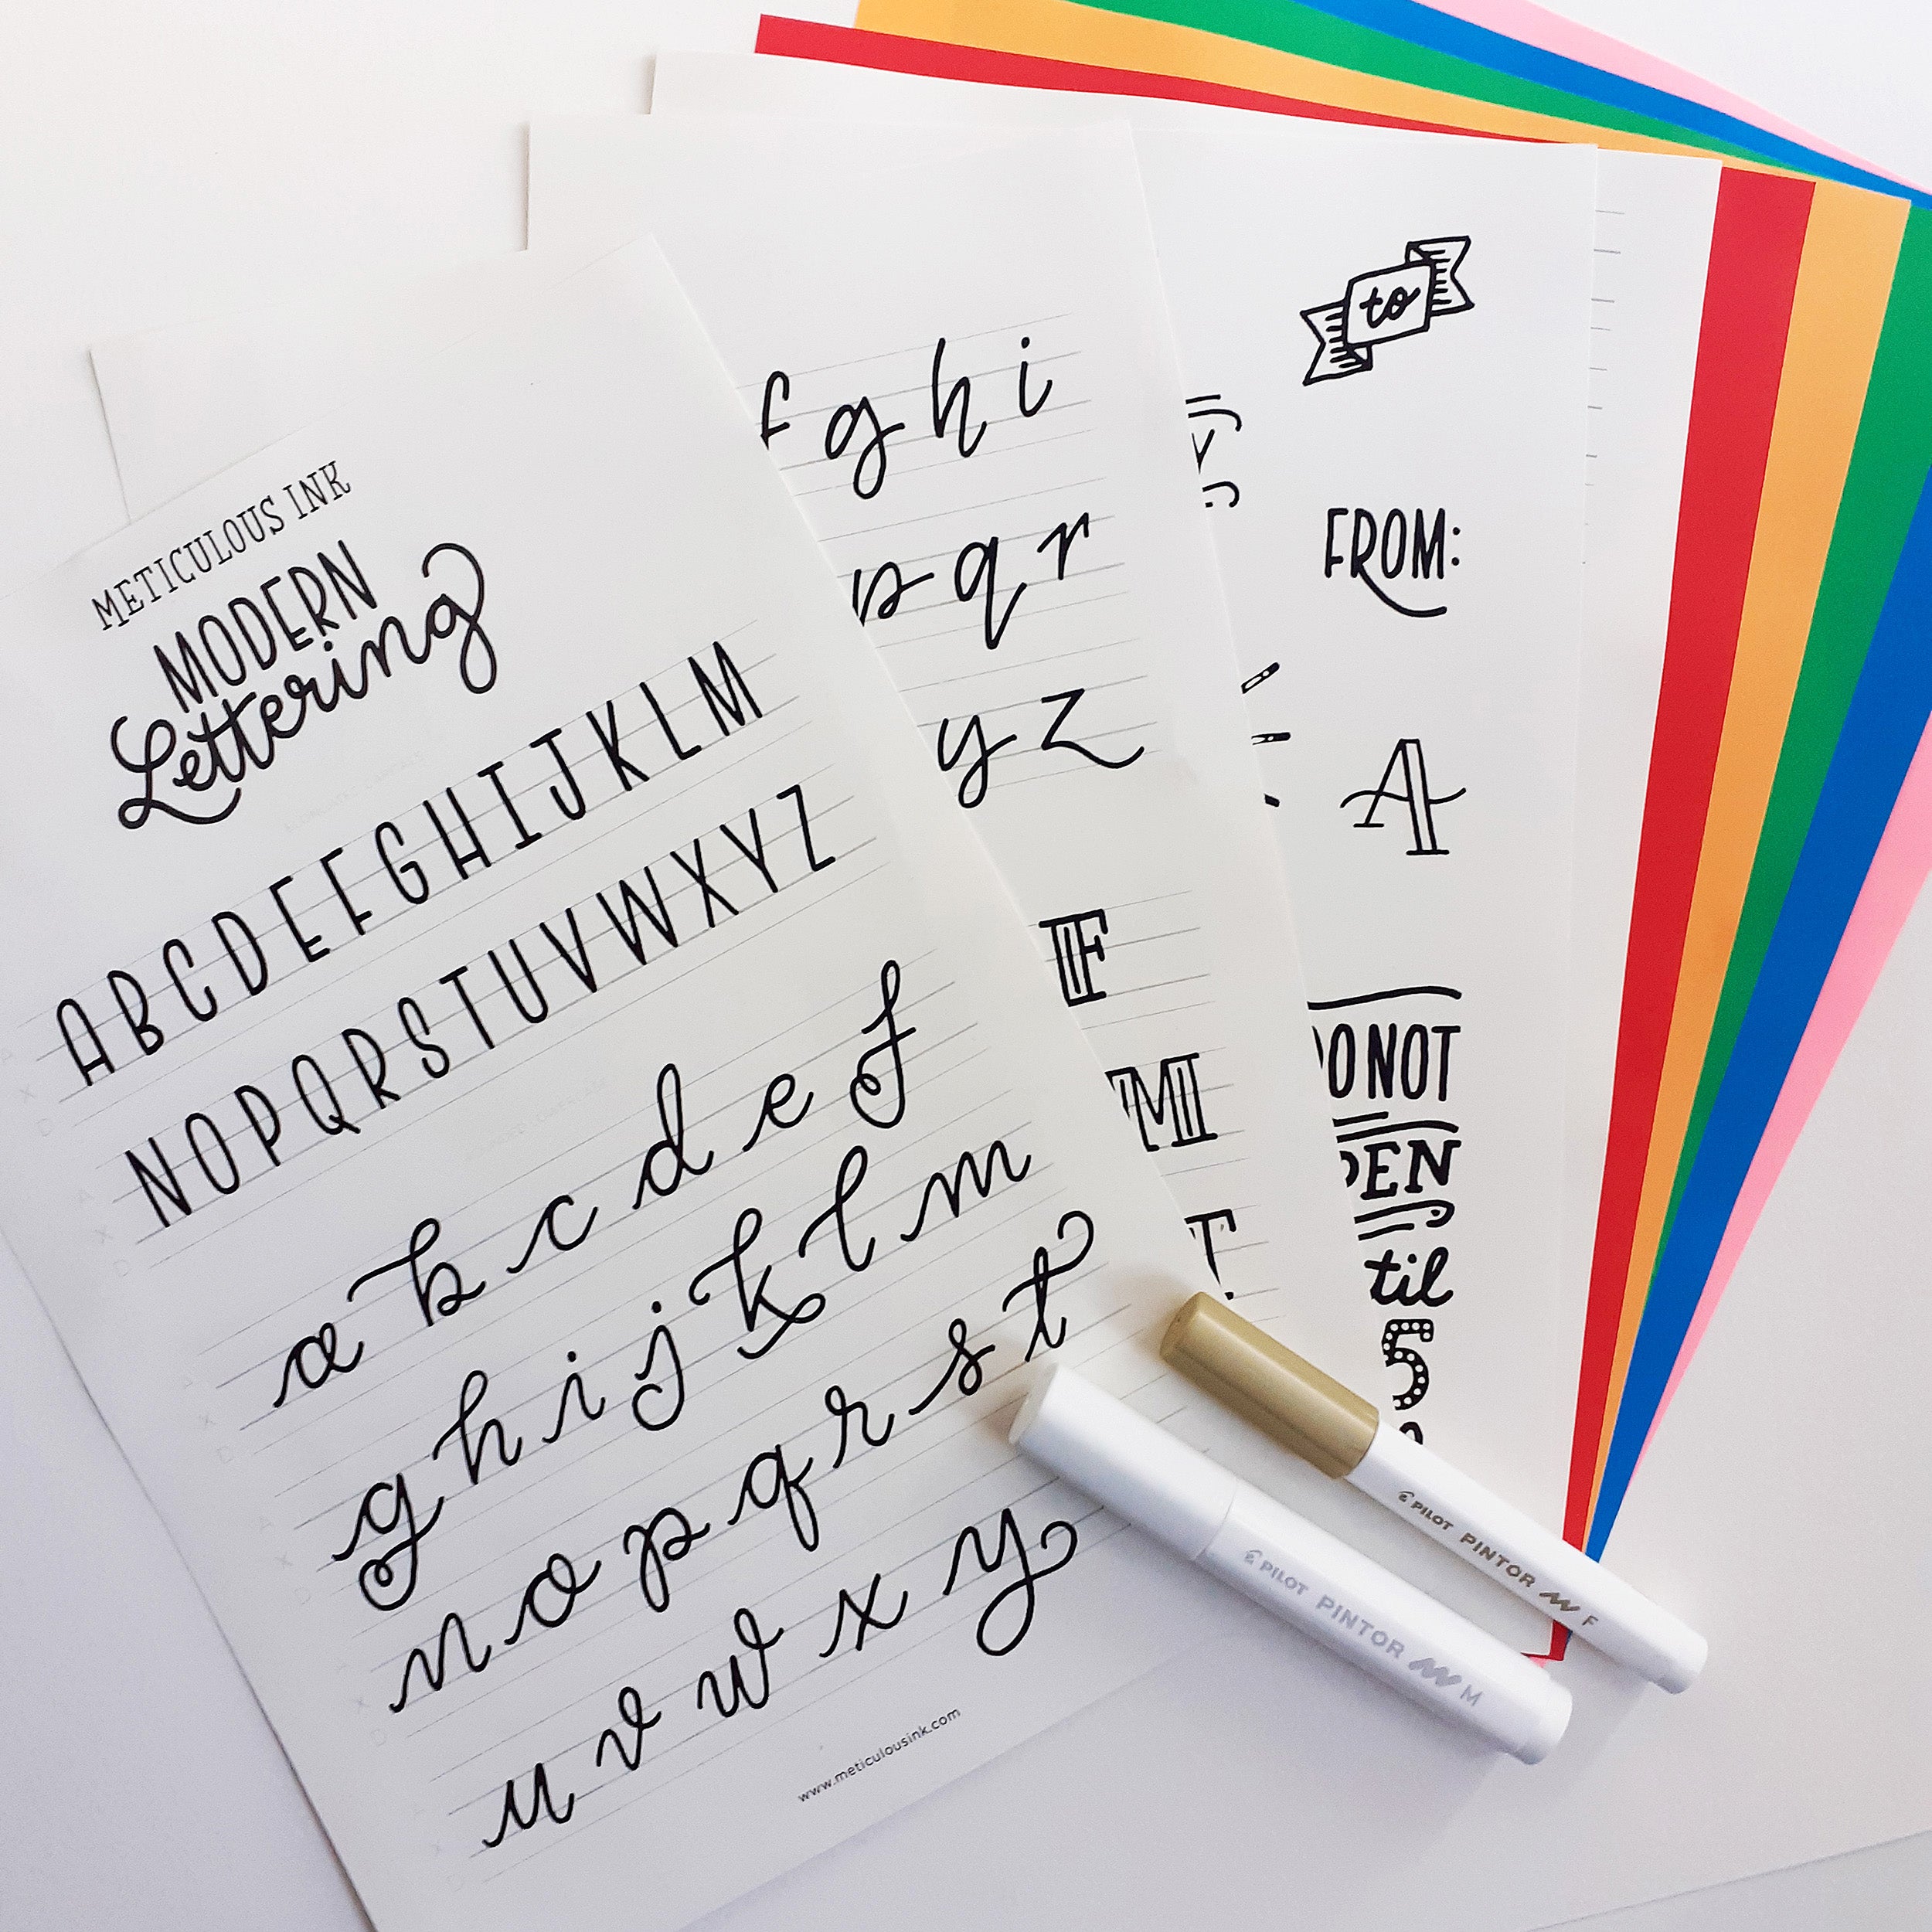 METICULOUS INK
MODERN
Lettering
ABCDEFGHIJKLM
NOPQRSTUVWXYZ
a b c d e f
g h i j k l m
n o p q r s t
u v w x y
www.meticulousink.com
f g h i
p q r
y z
F
M
T
to
FROM:
A
DO NOT
EN
til
5
PILOT PINTOR M
PILOT PINTOR F